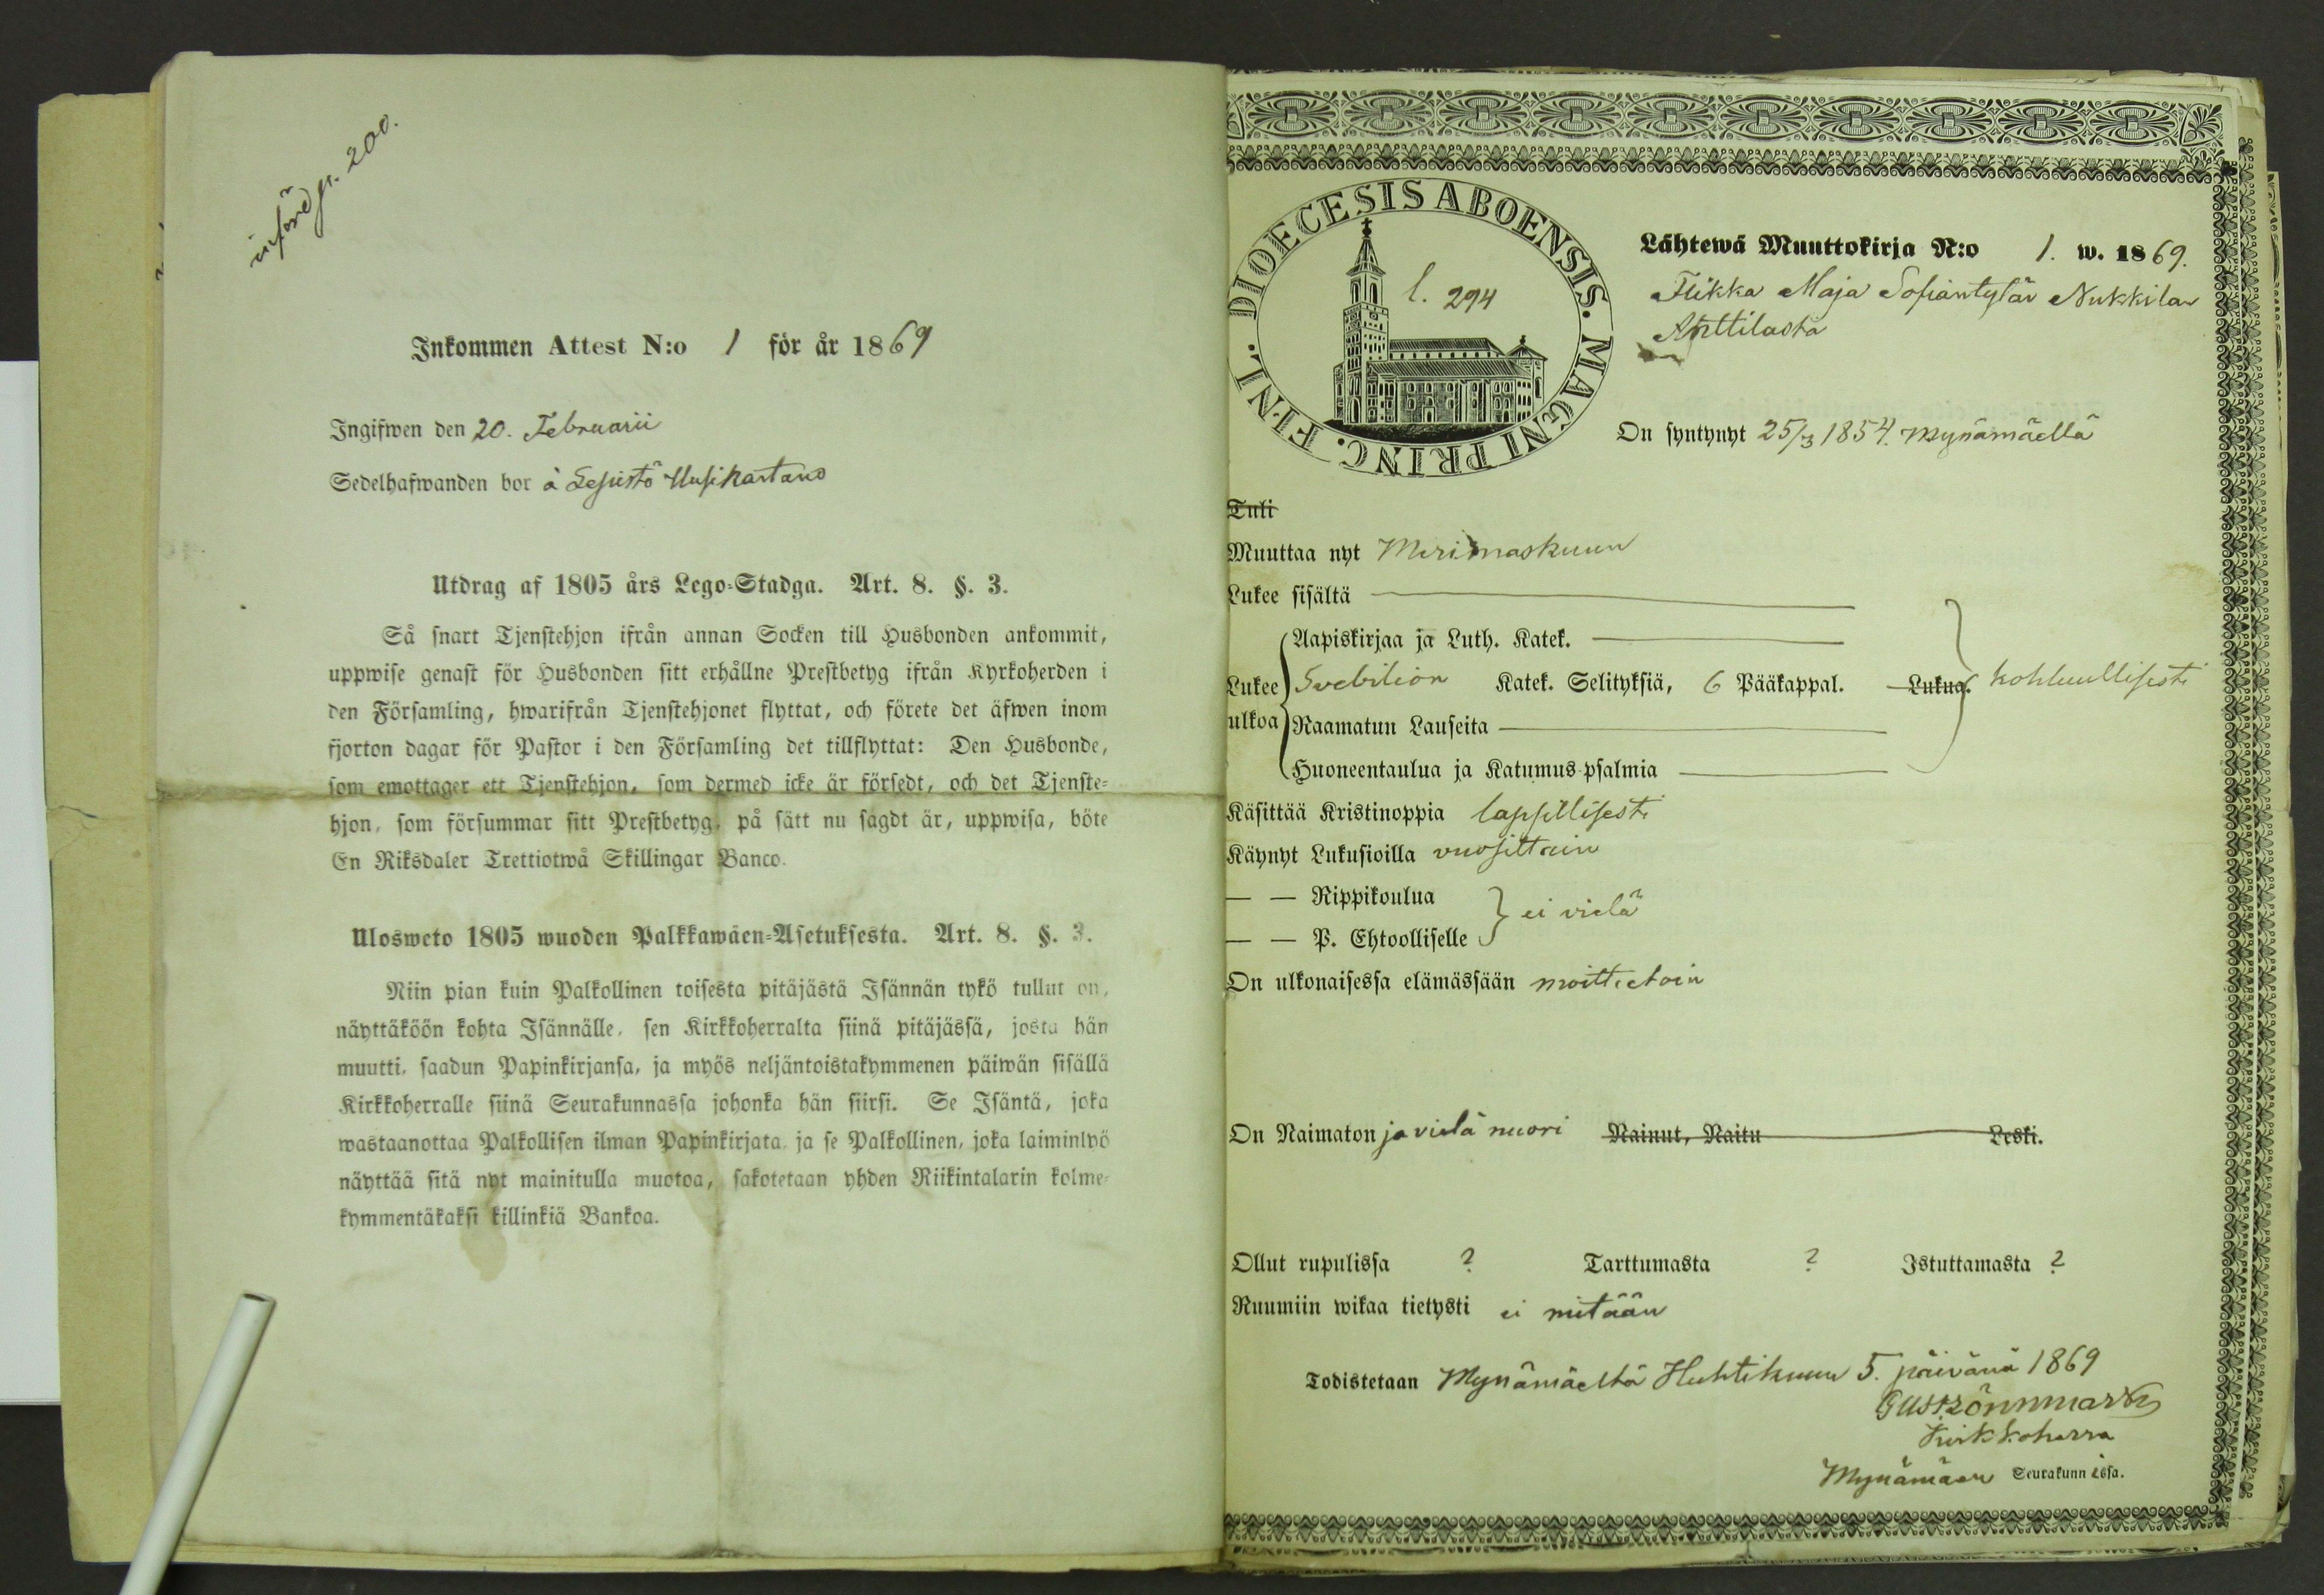 införd p. 200.
Inkommen Attest N:o 1 för år 1869
Ingifwen den 20. Februarii
Sedelhafwanden bor å Lepistö Uusikartano
Utdrag af 1805 års Lego-Stadga. Art. 8. §. 3.
Så snart Tjenstehjon ifrån annan Socken till Husbonden ankommit,
uppwise genast för Husbonden sitt erhållne Prestbetyg ifrån Kyrkoherden i
den Församling, hwarifrån Tjenstehjonet flyttat, och förete det äfwen inom
fjorton dagar för Pastor i den Församling det tillflyttat: Den Husbonde,
som emottager ett Tjenstehjon, som dermed icke är försedt, och det Tjenste-
hjon, som försummar sitt Prestbetyg, på sätt nu sagdt är, uppwisa, böte
En Riksdaler Trettiotwå Skillingar Banco.
Ulosweto 1805 wuoden Palkkawäen-Asetuksesta. Art. 8. §. 3.
Niin pian kuin Palkollinen toisesta pitäjästä Isännän tykö tullut on,
näyttäköön kohta Isännälle, sen Kirkkoherralta siinä pitäjässä, josta hän
muutti, saadun Papinkirjansa, ja myös neljäntoistakymmenen päiwän sisällä
Kirkkoherralle siinä Seurakunnassa johonka hän siirsi. Se Isäntä, joka
wastaanottaa Palkollisen ilman Papinkirjata, ja se Palkollinen, joka laiminlyö
näyttää sitä nyt mainitulla muotoa, sakotetaan yhden Riikintalarin kolme-
kymmentäkaksi killinkiä Bankoa.
DIOECESIS ABOENSIS. MAGNI PRINC. FINL.
l. 294
Lähtewä Muuttokirja N:o 1. w. 1869.
Flikka Maja Sofiantytär Nukkilan
Anttilasta
On syntynyt 25/3 1854. Mynämäellä
Tuli
Muuttaa nyt Merimaskuun
Lukee sisältä
Aapiskirjaa ja Luth. Katek.
Lukee ulkoa Svebilion Katek. Selityksiä, 6 Pääkappal. Lukua. kohtuullisesti
Raamatun Lauseita
Huoneentaulua ja Katumus-psalmia
Käsittää Kristinoppia lapsillisesti
Käynyt Lukusioilla vuosittain
— — Rippikoulua
ei vielä
— — P. Ehtoolliselle
On ulkonaisessa elämässään moitteetoin
On Naimaton ja vielä nuori Nainut, Naitu Leski.
Ollut rupulissa ? Tarttumasta ? Istuttamasta ?
Ruumiin wikaa tietysti ei mitään
Todistetaan Mynämäeltä Huhtikuun 5. päivänä 1869
Kirkkoherra
Mynämäen Seurakunnissa.